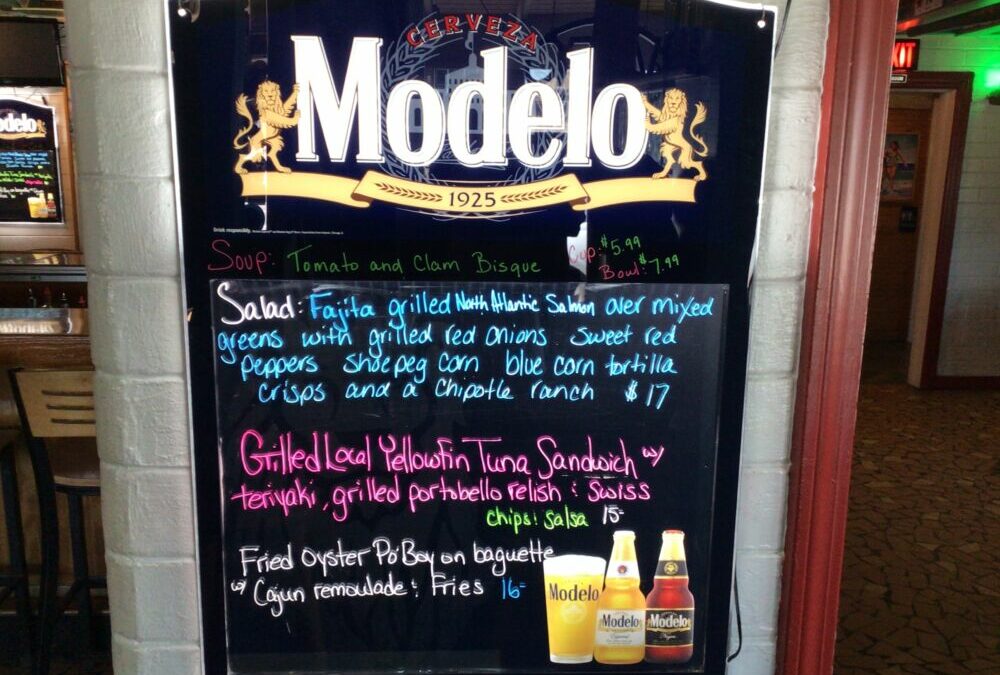 CERVEZA
Modelo
1925
Drink responsibly.
Soup: Tomato and Clam Bisque
Cup: $5.99
Bowl: $7.99
Salad: Fajita grilled North Atlantic Salmon over mixed
greens with grilled red onions sweet red
peppers shoepeg corn blue corn tortilla
crisps and a Chipotle ranch $17
Grilled Local Yellowfin Tuna Sandwich w/
teriyaki, grilled portobello relish & Swiss
chips & salsa 15-
Fried Oyster Po'Boy on baguette
w/ Cajun remoulade & Fries 16-
Modelo
Modelo
Modelo